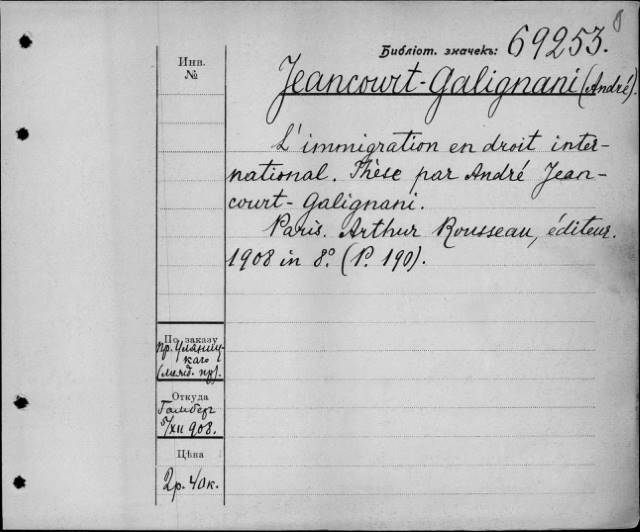 Библіот. значекъ: 69253.
Инв.
№
Jeancourt-Galignani (André).
L'immigration en droit inter-
national. Thèse par André Jean-
court-Galignani.
Paris. Arthur Rousseau, éditeur.
1908 in 8º. (P. 190).
По заказу
пр. Уляниц-
каго
Откуда
Гамберг
5/XII 908.
Цѣна
2 р. 40 к.